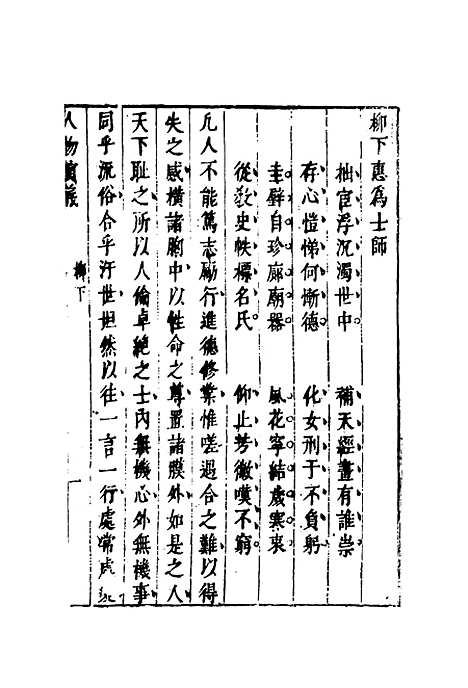 柳下惠為士師
拙宦浮沉濁世中。 補天經畫有誰崇
存心愷悌何慚德 化女刑于不負躬
圭璧自珍廊廟器。 風花寧結歲寒衷
從教史帙標名氏。 仰止芳徽嘆不窮
凡人不能篤志勵行進德修業惟嗟遇合之難以得
失之感橫諸胸中以性命之尊置諸膜外如是之人
天下耻之所以人倫卓絶之士內無機心外無機事
同乎流俗合乎汙世坦然以往一言一行處常處
人物演義
柳下
一